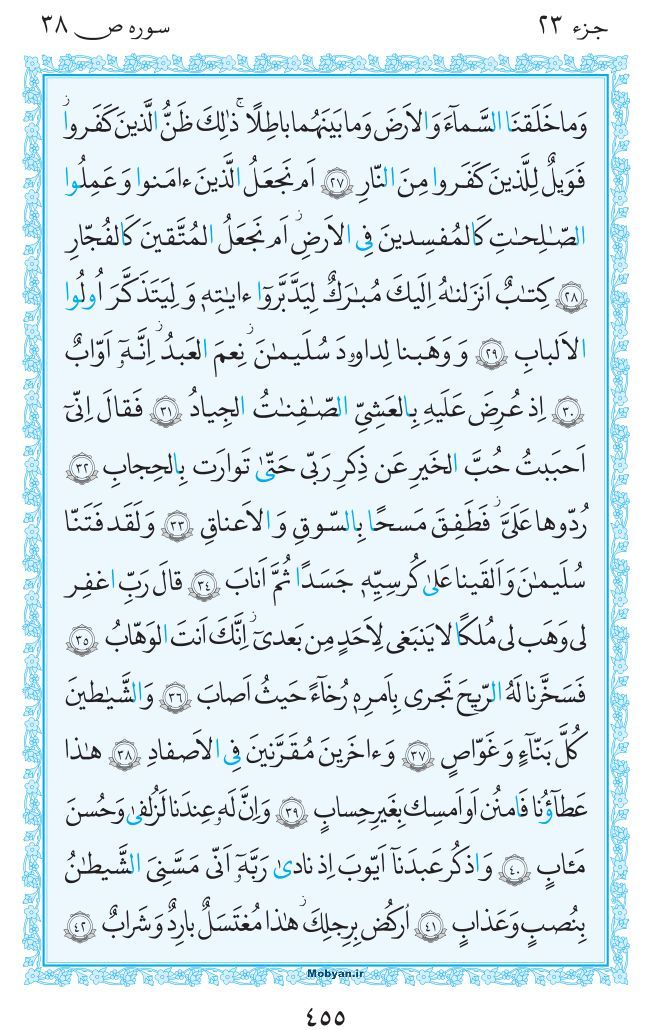 جزء ۲۳
سوره ص ۳۸
وَما خَلَقنَا السَّماءَ وَالاَرضَ وَما بَينَهُما باطِلًا ۚ ذٰلِكَ ظَنُّ الَّذينَ كَفَروا ۚ
فَوَيلٌ لِلَّذينَ كَفَروا مِنَ النّارِ ﴿۲۷﴾ اَم نَجعَلُ الَّذينَ ءامَنوا وَعَمِلُوا
الصّٰلِحٰتِ كَالمُفسِدينَ فِى الاَرضِ اَم نَجعَلُ المُتَّقينَ كَالفُجّارِ
﴿۲۸﴾ كِتٰبٌ اَنزَلنٰهُ اِلَيكَ مُبٰرَكٌ لِيَدَّبَّروا ءايٰتِهِ وَلِيَتَذَكَّرَ اُولُوا
الاَلبابِ ﴿۲۹﴾ وَوَهَبنا لِداوودَ سُلَيمٰنَ ۚ نِعمَ العَبدُ ۖ اِنَّهُ اَوّابٌ
﴿۳۰﴾ اِذ عُرِضَ عَلَيهِ بِالعَشِىِّ الصّٰفِنٰتُ الجِيادُ ﴿۳۱﴾ فَقالَ اِنّى
اَحبَبتُ حُبَّ الخَيرِ عَن ذِكرِ رَبّى حَتّىٰ تَوارَت بِالحِجابِ ﴿۳۲﴾
رُدّوها عَلَىَّ ۖ فَطَفِقَ مَسحًا بِالسّوقِ وَالاَعناقِ ﴿۳۳﴾ وَلَقَد فَتَنّا
سُلَيمٰنَ وَاَلقَينا عَلىٰ كُرسِيِّهِ جَسَدًا ثُمَّ اَنابَ ﴿۳۴﴾ قالَ رَبِّ اغفِر
لى وَهَب لى مُلكًا لا يَنبَغى لِاَحَدٍ مِن بَعدى ۖ اِنَّكَ اَنتَ الوَهّابُ ﴿۳۵﴾
فَسَخَّرنا لَهُ الرّيحَ تَجرى بِاَمرِهِ رُخاءً حَيثُ اَصابَ ﴿۳۶﴾ وَالشَّيٰطينَ
كُلَّ بَنّاءٍ وَغَوّاصٍ ﴿۳۷﴾ وَءاخَرينَ مُقَرَّنينَ فِى الاَصفادِ ﴿۳۸﴾ هٰذا
عَطاؤُنا فَامنُن اَو اَمسِك بِغَيرِ حِسابٍ ﴿۳۹﴾ وَاِنَّ لَهُ عِندَنا لَزُلفىٰ وَحُسنَ
مَـٔابٍ ﴿۴۰﴾ وَاذكُر عَبدَنا اَيّوبَ اِذ نادىٰ رَبَّهُ اَنّى مَسَّنِىَ الشَّيطٰنُ
بِنُصبٍ وَعَذابٍ ﴿۴۱﴾ اُركُض بِرِجلِكَ ۖ هٰذا مُغتَسَلٌ بارِدٌ وَشَرابٌ ﴿۴۲﴾
Mobyan.ir
۴۵۵